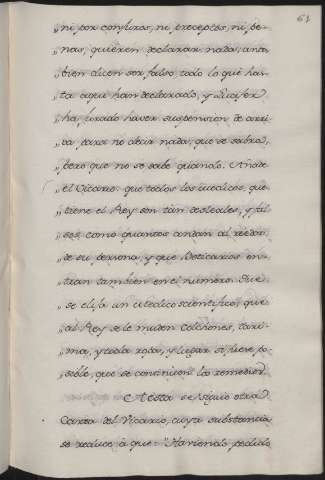 61
"ni por conjuros, ni preceptos, ni pe-
"nas, quieren declarar nada; an
"bien dicen ser falso todo lo que has-
"ta aqui han declarado, y Lucifer
"ha jurado haver suspension de arri
"va para no decir nada, que se sabra,
"pero que no se sabe quando. Añade
"el Vicario que todos los medicos que
"tiene el Rey son tan desleales, y fal
"sos, como quantos andan al rededor
"de su persona, y que Boticarios en-
"tran tambien en el numero. Que
"se elija un medico scientifico, que
"al Rey se le muden colchones, tari
"ma, y toda ropa, y lugar si fuere po-
"sible, que se continuen los remedios.
A esta se siguio otra
Carta del Vicario, cuya substancia
se reduce à que: "Haviendo pedido